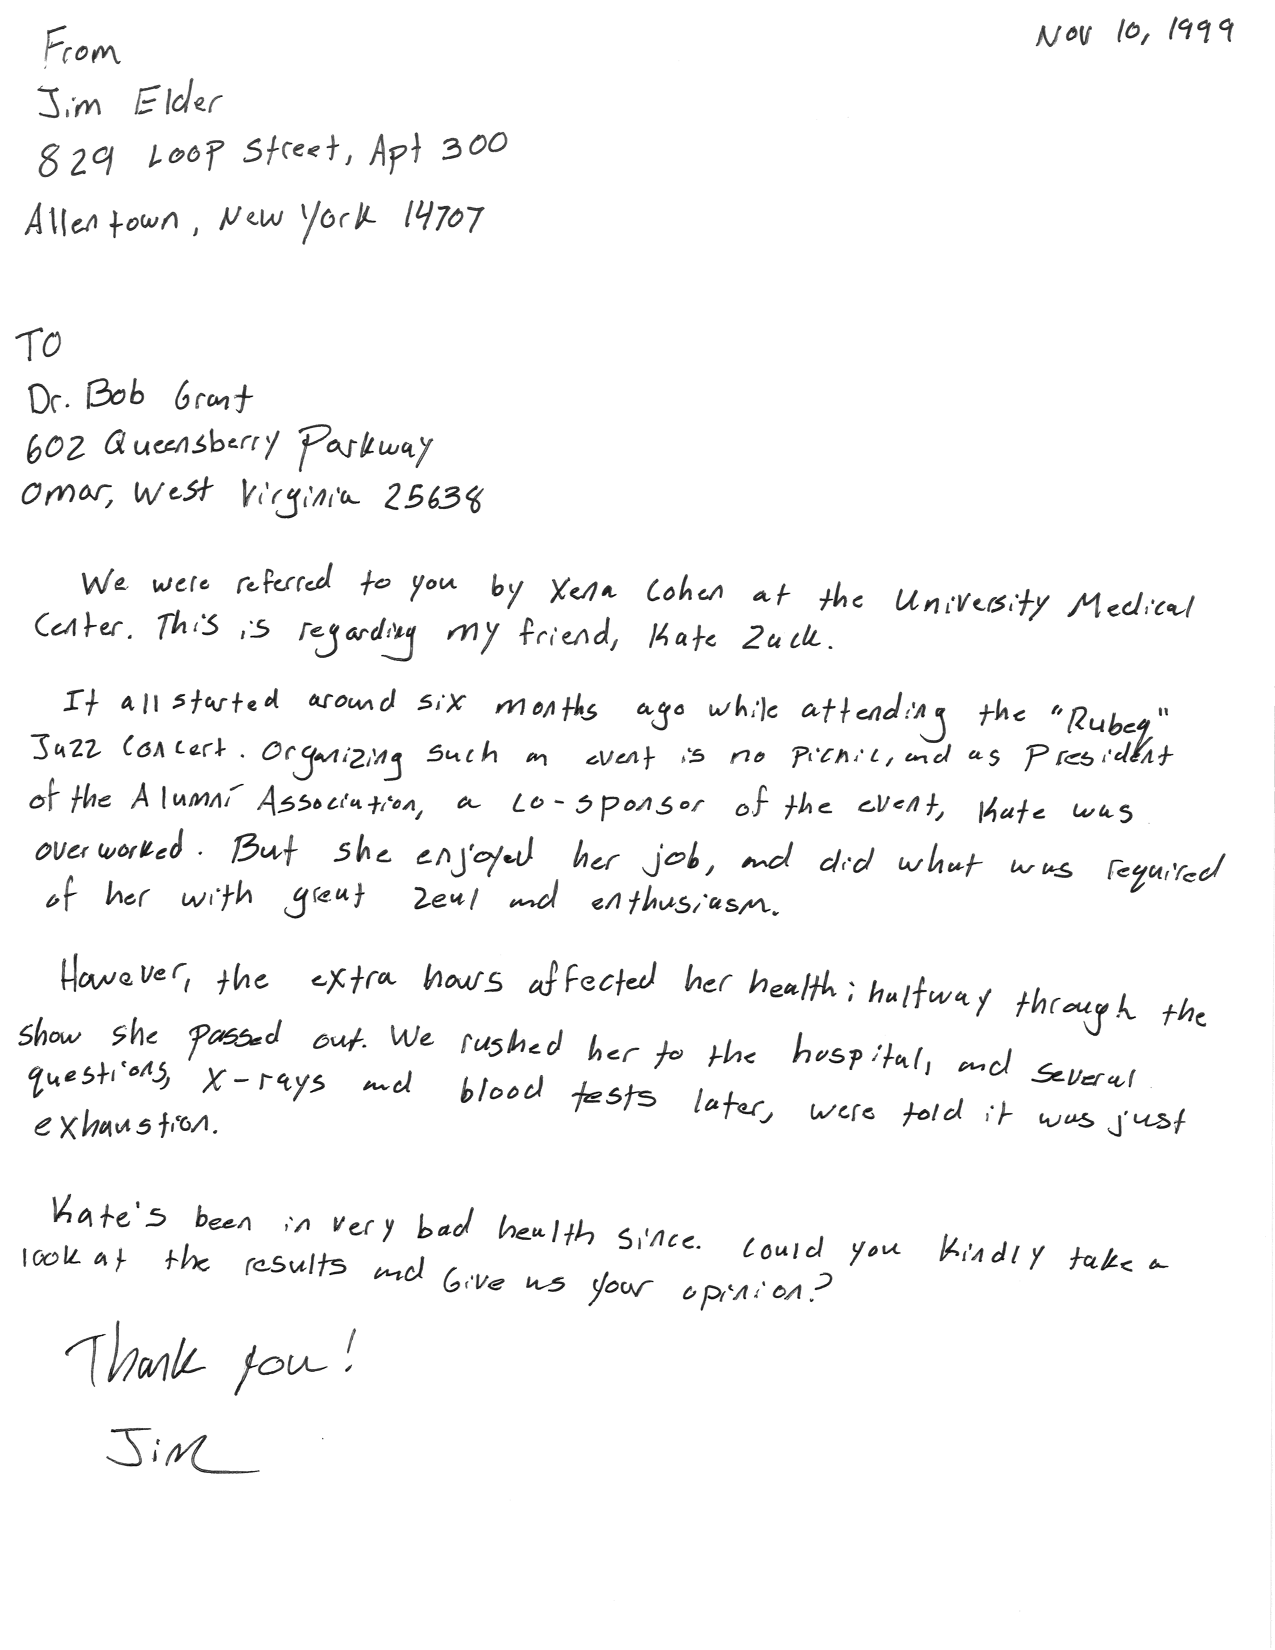 Nov 10, 1999
From
Jim Elder
829 Loop Street, Apt 300
Allentown, New York 14707
TO
Dr. Bob Grant
602 Queensberry Parkway
Omar, West Virginia 25638
We were referred to you by Xena Cohen at the University Medical
Center. This is regarding my friend, Kate Zack.
It all started around six months ago while attending the "Rubeq"
Jazz Concert. Organizing such an event is no picnic, and as President
of the Alumni Association, a co-sponsor of the event, Kate was
overworked. But she enjoyed her job, and did what was required
of her with great zeal and enthusiasm.
However, the extra hours affected her health; halfway through the
show she passed out. We rushed her to the hospital, and several
questions, x-rays and blood tests later, were told it was just
exhaustion.
Kate's been in very bad health since. Could you kindly take a
look at the results and give us your opinion?
Thank you!
Jim